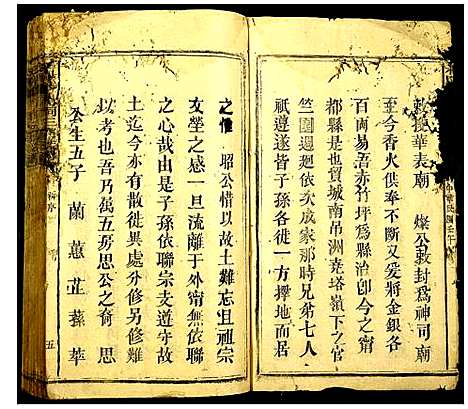 敕授華表廟 燦公敕封爲神司廟
至今香火供奉不斷又爰將金銀各
百両易吾赤竹坪爲縣治卽今之寗
都縣是也貿城南吊洲尭塔嶺下之官
竺園迴廻依次成家那時兄弟七人
祇遵遂皆子孫各徙一方擇地而居
之惟 昭公惜以故土難忘且祖宗
坟塋之感一旦流離于外甯無依聯
之心哉由是子孫依聯宗支遵守故
土迄今亦有散徙異處分修另修難
以考也吾乃萬五房思公之裔 思
公生五子 蘭蕙芷蓁華
五